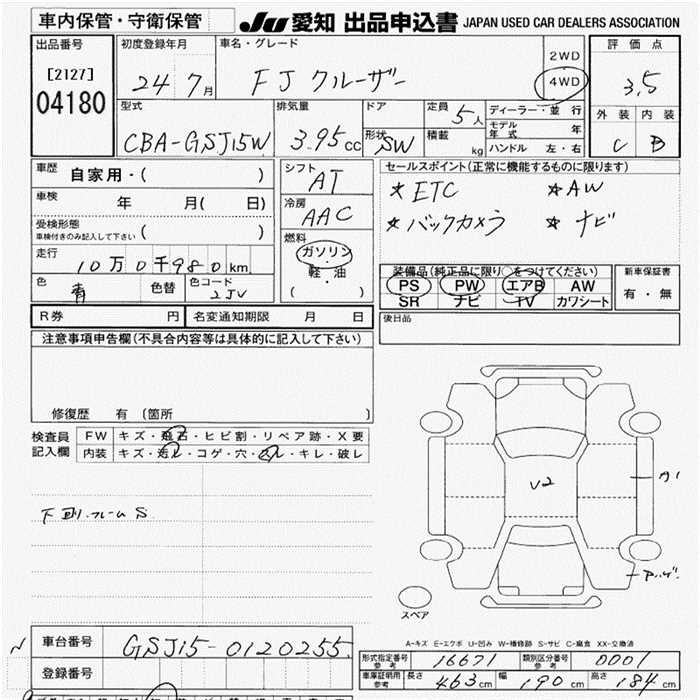 車内保管・守衛保管
JU 愛知 出品申込書 JAPAN USED CAR DEALERS ASSOCIATION
出品番号
[2127]
04180
初度登録年月
24 7月
車名・グレード
FJ クルーザー
2WD
4WD
評価点
3.5
外装 内装
C B
型式
CBA-GSJ15W
排気量
3.95cc
ドア
形状 SW
定員 5人
積載 kg
ディーラー・並行
モデル年式 年
ハンドル 左・右
車歴 自家用・( )
車検 年 月( 日)
受検形態
車検付きのみ記入して下さい ( )
走行 10万0千980km
色 青 色替 色コード 2JV
シフト
AT
冷房
AAC
燃料
ガソリン
軽・油
( )
セールスポイント(正常に機能するものに限ります)
*ETC *AW
*バックカメラ *ナビ
装備品(純正品に限り○をつけてください)
PS PW エアB AW
SR ナビ TV カワシート
新車保証書
有・無
R券 円 名変通知期限 月 日
後日品
注意事項申告欄(不具合内容等は具体的に記入して下さい)
修復歴 有 (箇所 )
検査員
記入欄
FW キズ・飛石・ヒビ割・リペア跡・X要
内装 キズ・汚ル・コゲ・穴・スレ・キレ・破レ
下廻.フレーム S
V2
A1
スペア
A-キズ E-エクボ U-凹み W-補修跡 S-サビ C-腐食 XX-交換済
車台番号 GSJ15-0120255
登録番号
形式指定番号 参考 16671
類別区分番号 参考 0001
車庫証明用 参考 長さ 463cm 幅 190cm 高さ 184cm